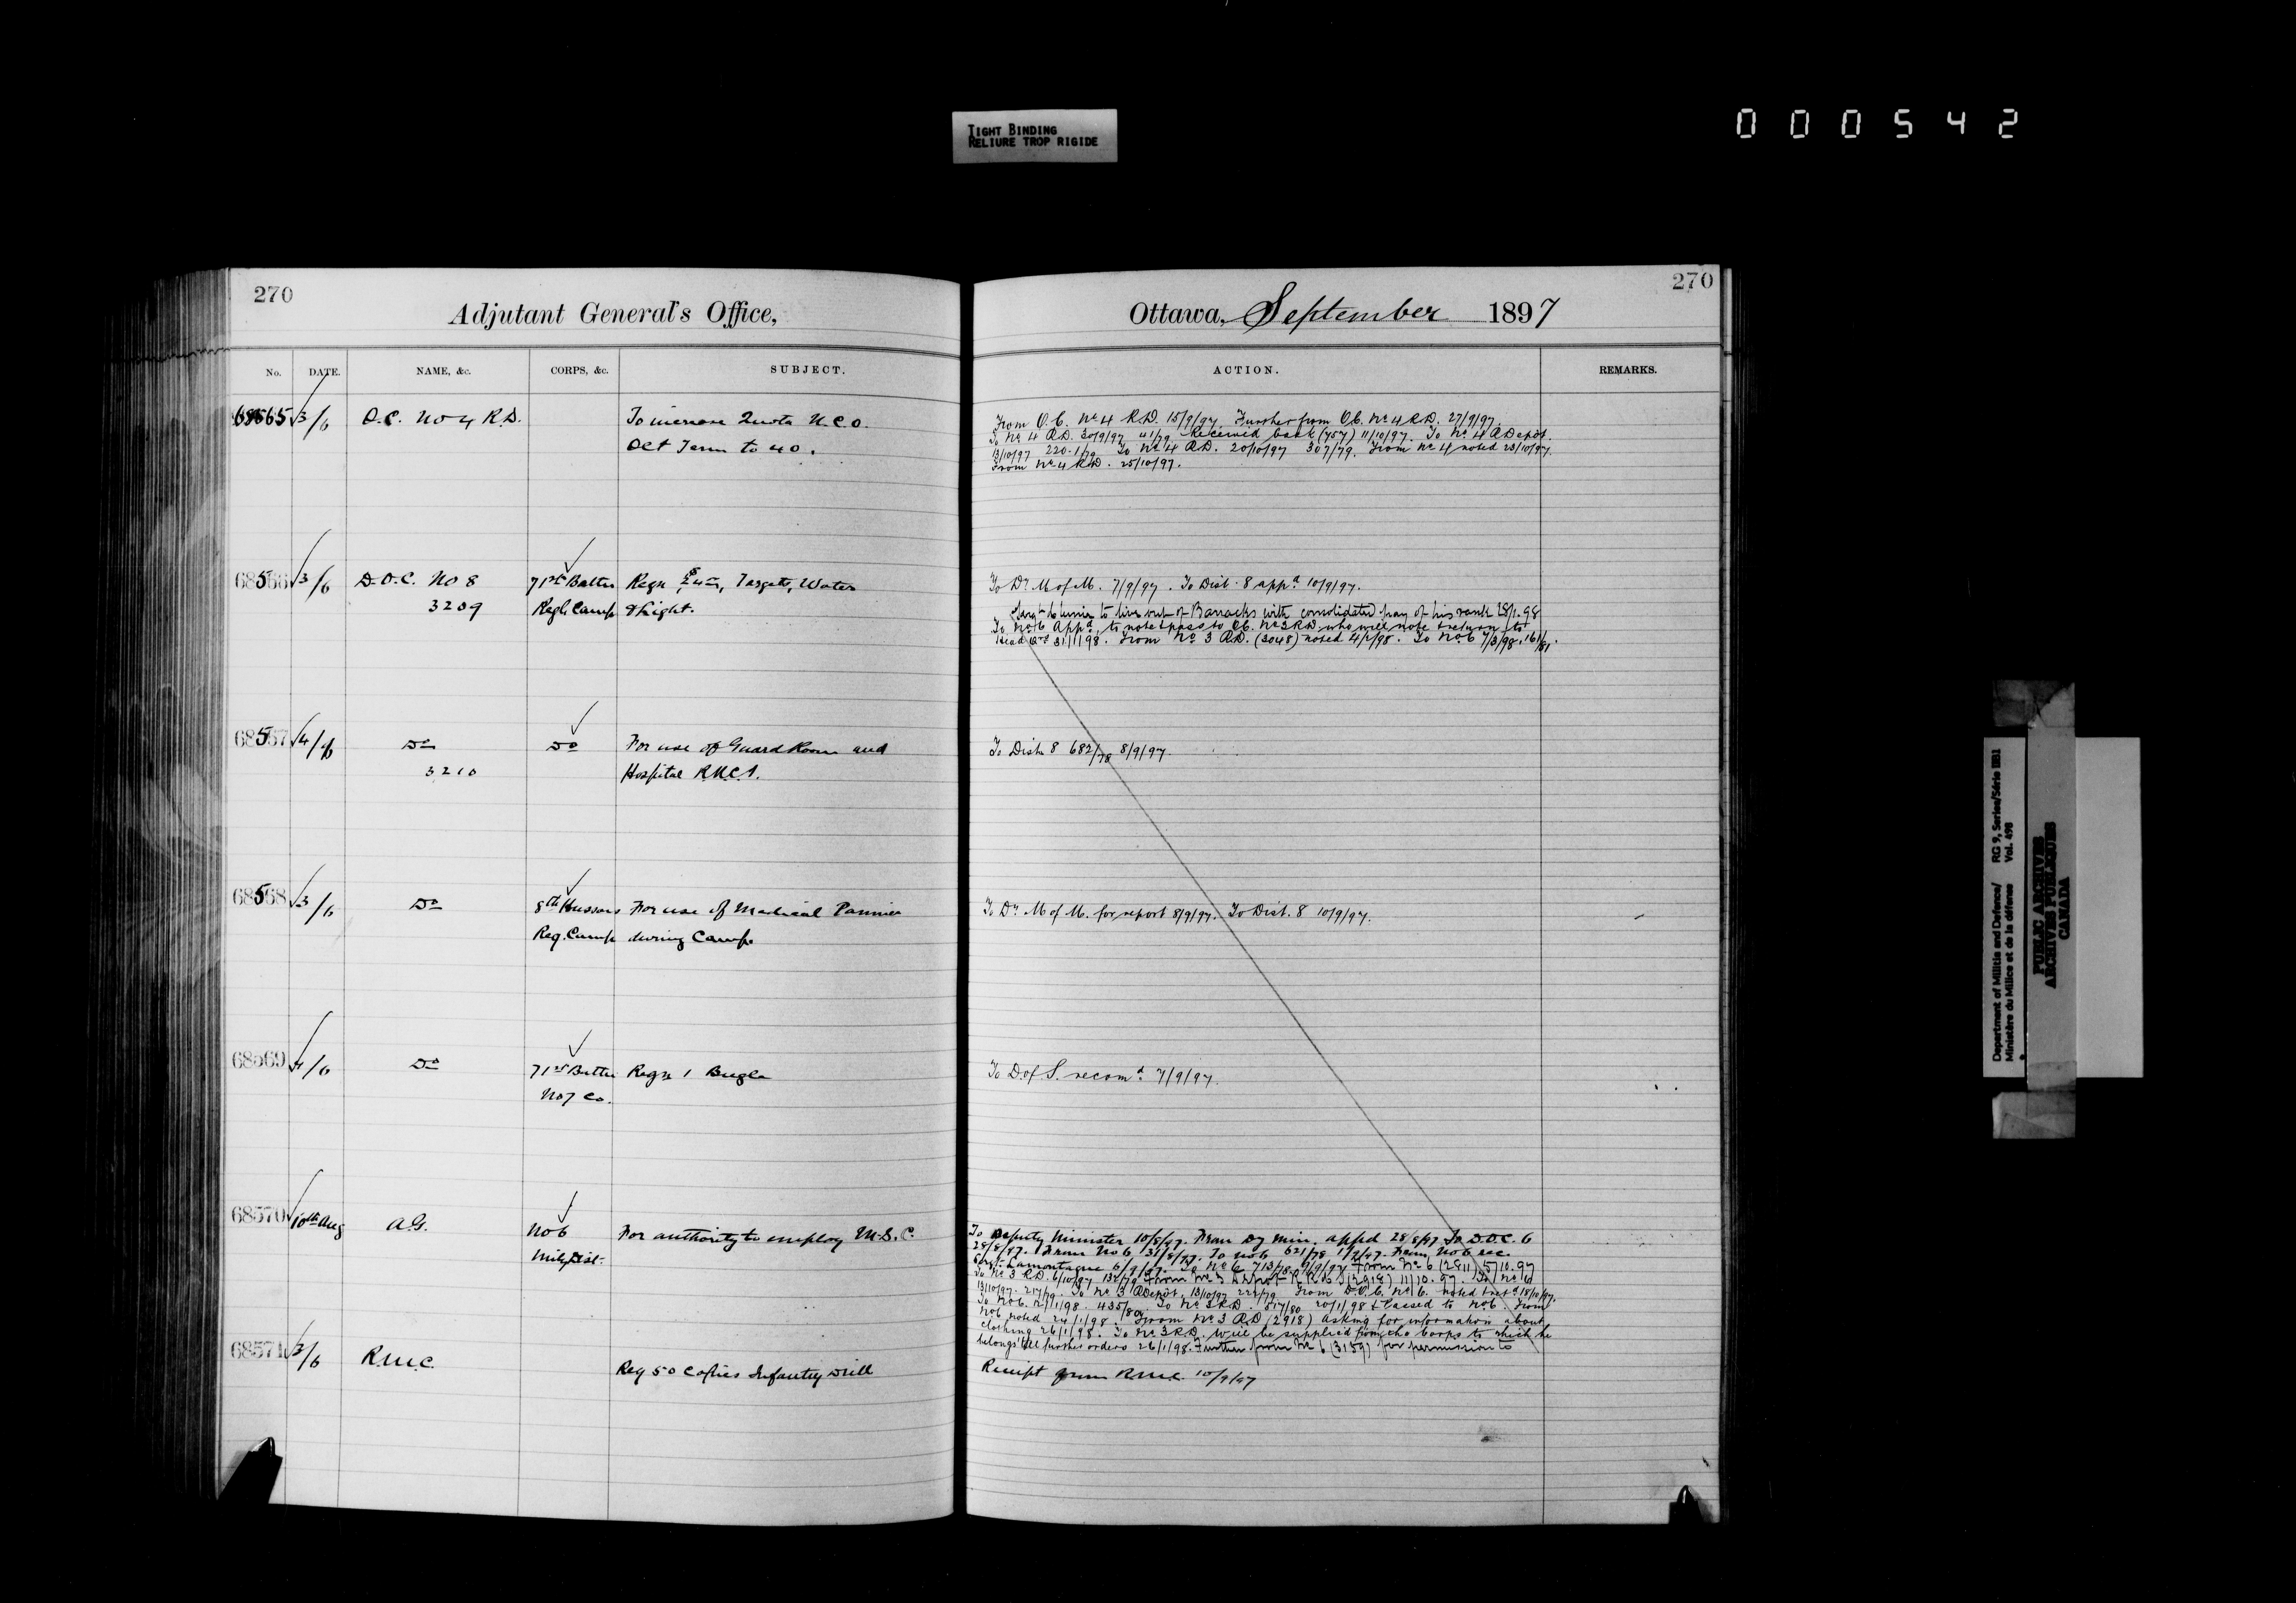 TIGHT BINDING
RELIURE TROP RIGIDE
000542
270
Adjutant General's Office,
No. DATE. NAME, &c. CORPS, &c. SUBJECT.
68565 3/6 O.C. No 4 R.D. To increase Quota N.C.O.
Oct Term to 40.
68566 3/6 D.O.C. No 8 71st Battn Regn Targets, Water
3209 Regl. Camp & Light.
68567 4/6 Do Do For use of Guard Room and
3210 Hospital
68568 3/6 Do 8th Hussars For use of Medical Pannier
Reg. Camp during Camp
68569 4/6 Do 71st Battn Regn 1 Bugle
No 7 Co.
68570 10th Aug A.G. No 6 For authority to employ M.S.C.
Mily Dist.
68571 3/6 R.M.C. Req 50 Copies Infantry Drill
270
Ottawa, September 1897
ACTION. REMARKS.
From O.C. No 4 R.D. 15/9/97. Further from O.C. No 4 R.D. 27/9/97.
To No 4 R.D. 30/9/97 41/79 Received back (757) 11/10/97. To No 4 R Depôt.
13/10/97 220.1/79 To No 4 R.D. 20/10/97 307/79. From No 4 noted 23/10/97.
From No 4 R.D. 25/10/97.
To Dr M of M. 7/9/97. To Dist. 8 appd 10/9/97.
to live out of Barracks with consolidated pay of his rank 28/1.98
To No 6 appd, to note & pass to O.C. No 3 R.D. who will note & return to
Head Qrs 31/1/98. From No 3 R.D. (3048) noted 4/2/98. To No 6 7/3/98. 161/81.
To Dist. 8 682/78 8/9/97.
To Dr M of M. for report 8/9/97. To Dist. 8 10/9/97.
To D. of S. recomd 7/9/97.
To Deputy Minister 10/8/97. From Dy Min. appd 28/8/97 To D.O.C. 6
28/8/97. From No 6 31/8/97. To No 6 621/78 1/9/97. From No 6 rec.
Sergt. Lamontagne 6/9/97. To No 6 713/78 9/9/97 From No 6 (2811) 5/10.97
To No 3 R.D. 6/10/97 132/79 From No 3 Depot (2918) 11/10.97. To No 6
13/10/97. 217/79. To No 3 R Depôt, 13/10/97 221/79 From D.O.C. No 6. noted & retd 18/10/97.
To No 6. 435/80. To No 3 R.D. 517/80 20/1/98 & Passed to No 6. From
No 6 noted 24/1/98. From No 3 R.D (2918) asking for information about
clothing 26/1/98. To No 3 R.D. Will be supplied from the Corps to which he
belongs till further orders 26/1/98. Further from No 6 (3159) for permission to
Receipt from R.M.C. 10/9/97
Department of Militia and Defence/ RG 9, Series/Série IIB1
Ministère du Milice et de la défense Vol. 498
PUBLIC ARCHIVES
ARCHIVES PUBLIQUES
CANADA